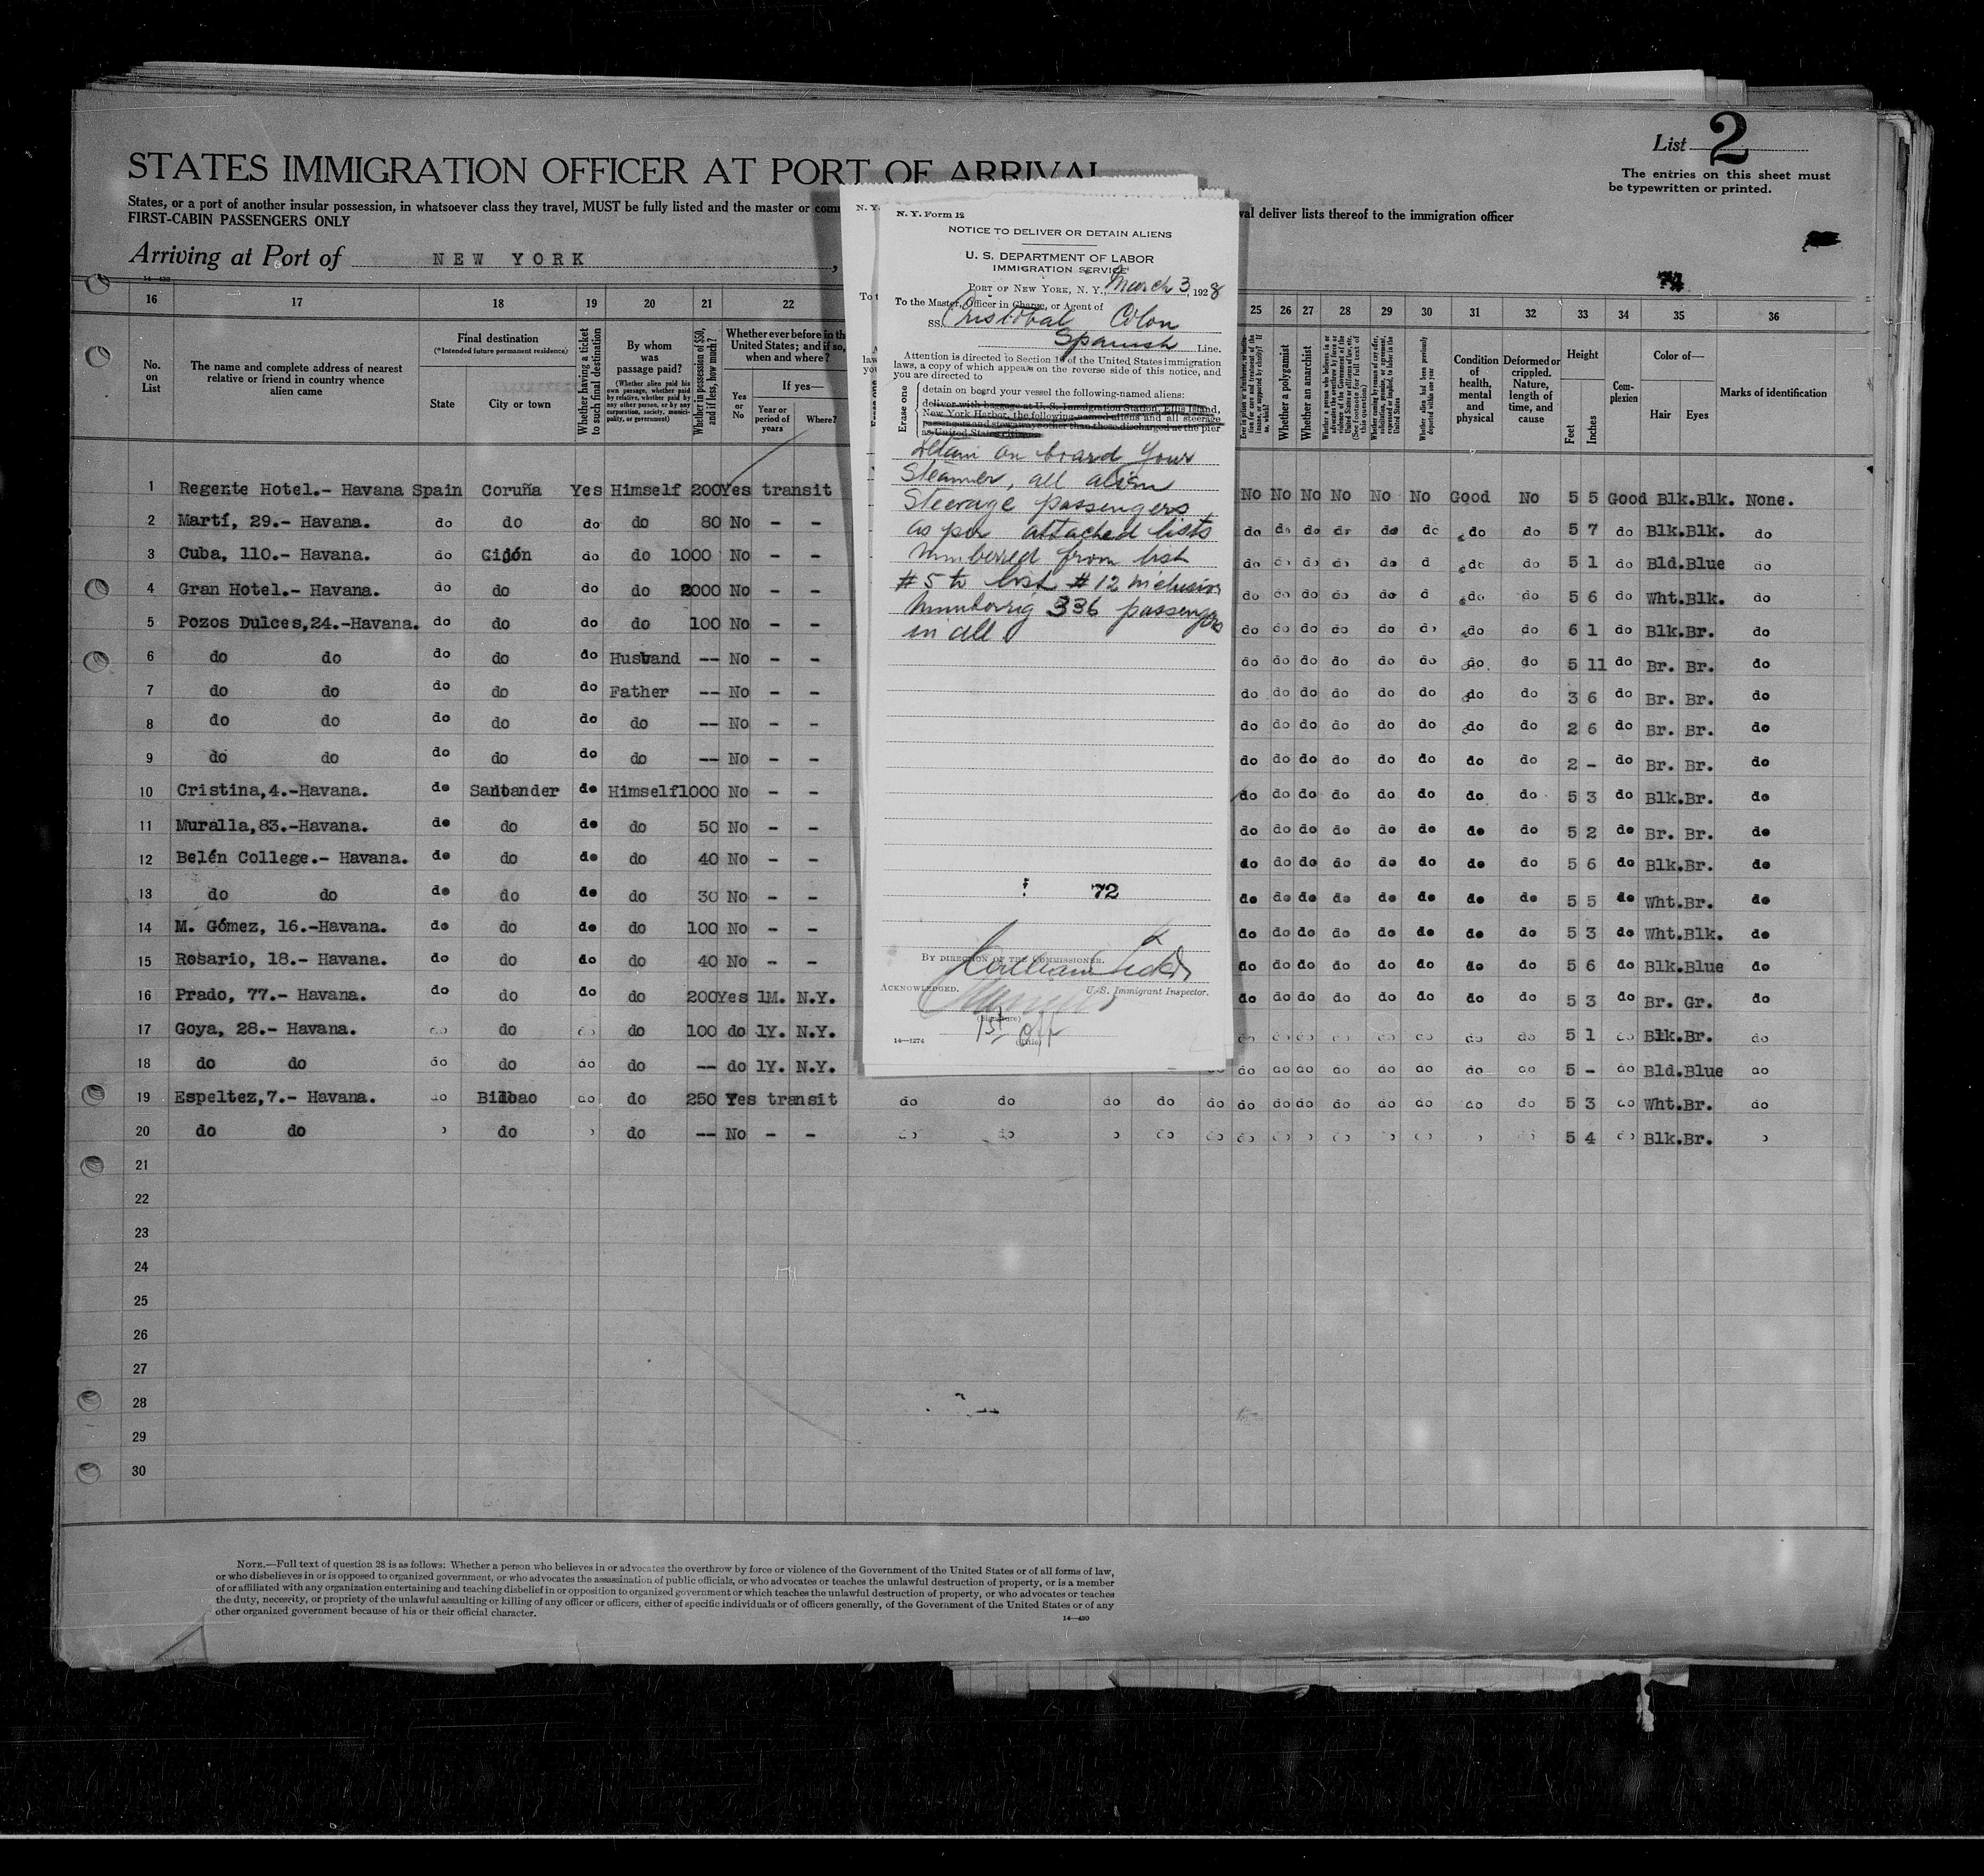 List 2
The entries on this sheet must
be typewritten or printed.
STATES IMMIGRATION OFFICER AT PORT OF ARRIVAL
States, or a port of another insular possession, in whatsoever class they travel, MUST be fully listed and the master or com
val deliver lists thereof to the immigration officer
FIRST-CABIN PASSENGERS ONLY
Arriving at Port of NEW YORK,
14-430
16 17 18 19 20 21 22 25 26 27 28 29 30 31 32 33 34 35 36
No. on List
The name and complete address of nearest relative or friend in country whence alien came
Final destination
(*Intended future permanent residence)
State
City or town
Whether having a ticket to such final destination
By whom was passage paid?
(Whether alien paid his own passage, whether paid by relative, whether paid by any other person, or by any corporation, society, municipality, or government)
Whether in possession of $50, and if less, how much?
Whether ever before in the United States; and if so, when and where?
Yes or No
If yes—
Year or period of years
Where?
Whether a polygamist
Whether an anarchist
Whether alien had been previously deported within one year
Condition of health, mental and physical
Deformed or crippled. Nature, length of time, and cause
Height
Feet
Inches
Complexion
Color of—
Hair
Eyes
Marks of identification
1 Regente Hotel.- Havana Spain Coruña Yes Himself 200 Yes transit No No No No No No Good No 5 5 Good Blk. Blk. None.
2 Martí, 29.- Havana. do do do do 80 No - - do do do do do do do do 5 7 do Blk. Blk. do
3 Cuba, 110.- Havana. do Gijón do do 1000 No - - do do do do do d do do 5 1 do Bld. Blue do
4 Gran Hotel.- Havana. do do do do 2000 No - - do do do do do d do do 5 6 do Wht. Blk. do
5 Pozos Dulces,24.-Havana. do do do do 100 No - - do do do do do do do do 6 1 do Blk. Br. do
6 do do do do do Husband -- No - - do do do do do do do do 5 11 do Br. Br. do
7 do do do do do Father -- No - - do do do do do do do do 3 6 do Br. Br. do
8 do do do do do do -- No - - do do do do do do do do 2 6 do Br. Br. do
9 do do do do do do -- No - - do do do do do do do do 2 - do Br. Br. do
10 Cristina,4.-Havana. do Santander do Himself 1000 No - - do do do do do do do do 5 3 do Blk. Br. do
11 Muralla,83.-Havana. do do do do 50 No - - do do do do do do do do 5 2 do Br. Br. do
12 Belén College.- Havana. do do do do 40 No - - do do do do do do do do 5 6 do Blk. Br. do
13 do do do do do do 30 No - - do do do do do do do do 5 5 do Wht. Br. do
14 M. Gómez, 16.-Havana. do do do do 100 No - - do do do do do do do do 5 3 do Wht. Blk. do
15 Rosario, 18.- Havana. do do do do 40 No - - do do do do do do do do 5 6 do Blk. Blue do
16 Prado, 77.- Havana. do do do do 200 Yes 1M. N.Y. do do do do do do do do 5 3 do Br. Gr. do
17 Goya, 28.- Havana. do do do do 100 do 1Y. N.Y. do do do do do do do do 5 1 do Blk. Br. do
18 do do do do do do -- do 1Y. N.Y. do do do do do do do do do 5 - do Bld. Blue do
19 Espeltez,7.- Havana. do Bilbao do do 250 Yes transit do do do do do do do do do do do do do 5 3 do Wht. Br. do
20 do do do do -- No - - do do do do do do do do 5 4 do Blk. Br.
21
22
23
24
25
26
27
28
29
30
N. Y. Form 12
NOTICE TO DELIVER OR DETAIN ALIENS
U. S. DEPARTMENT OF LABOR
IMMIGRATION SERVICE
PORT OF NEW YORK, N. Y., March 3, 1928
To the Master, Officer in Charge, or Agent of
SS. Cristobal Colon
Spanish Line.
Attention is directed to Section 16 of the United States immigration
laws, a copy of which appears on the reverse side of this notice, and
you are directed to
Erase one
detain on board your vessel the following-named aliens:
deliver with baggage at U. S. Immigration Station, Ellis Island,
New York Harbor, the following-named aliens and all steerage
passengers and stowaways other than those discharged at the pier
as United States
Detain on board your
Steamer, all alien
Steerage passengers
as per attached lists
Numbered from list
#5 to list #12 inclusive
Numbering 336 passengers
in all
72
BY DIRECTION OF THE COMMISSIONER.
ACKNOWLEDGED.
U. S. Immigrant Inspector.
(Signature)
1st Off
(Title)
14—1274
NOTE.—Full text of question 28 is as follows: Whether a person who believes in or advocates the overthrow by force or violence of the Government of the United States or of all forms of law,
or who disbelieves in or is opposed to organized government, or who advocates the assassination of public officials, or who advocates or teaches the unlawful destruction of property, or is a member
of or affiliated with any organization entertaining and teaching disbelief in or opposition to organized government or which teaches the unlawful destruction of property, or who advocates or teaches
the duty, necessity, or propriety of the unlawful assaulting or killing of any officer or officers, either of specific individuals or of officers generally, of the Government of the United States or of any
other organized government because of his or their official character.
14—430